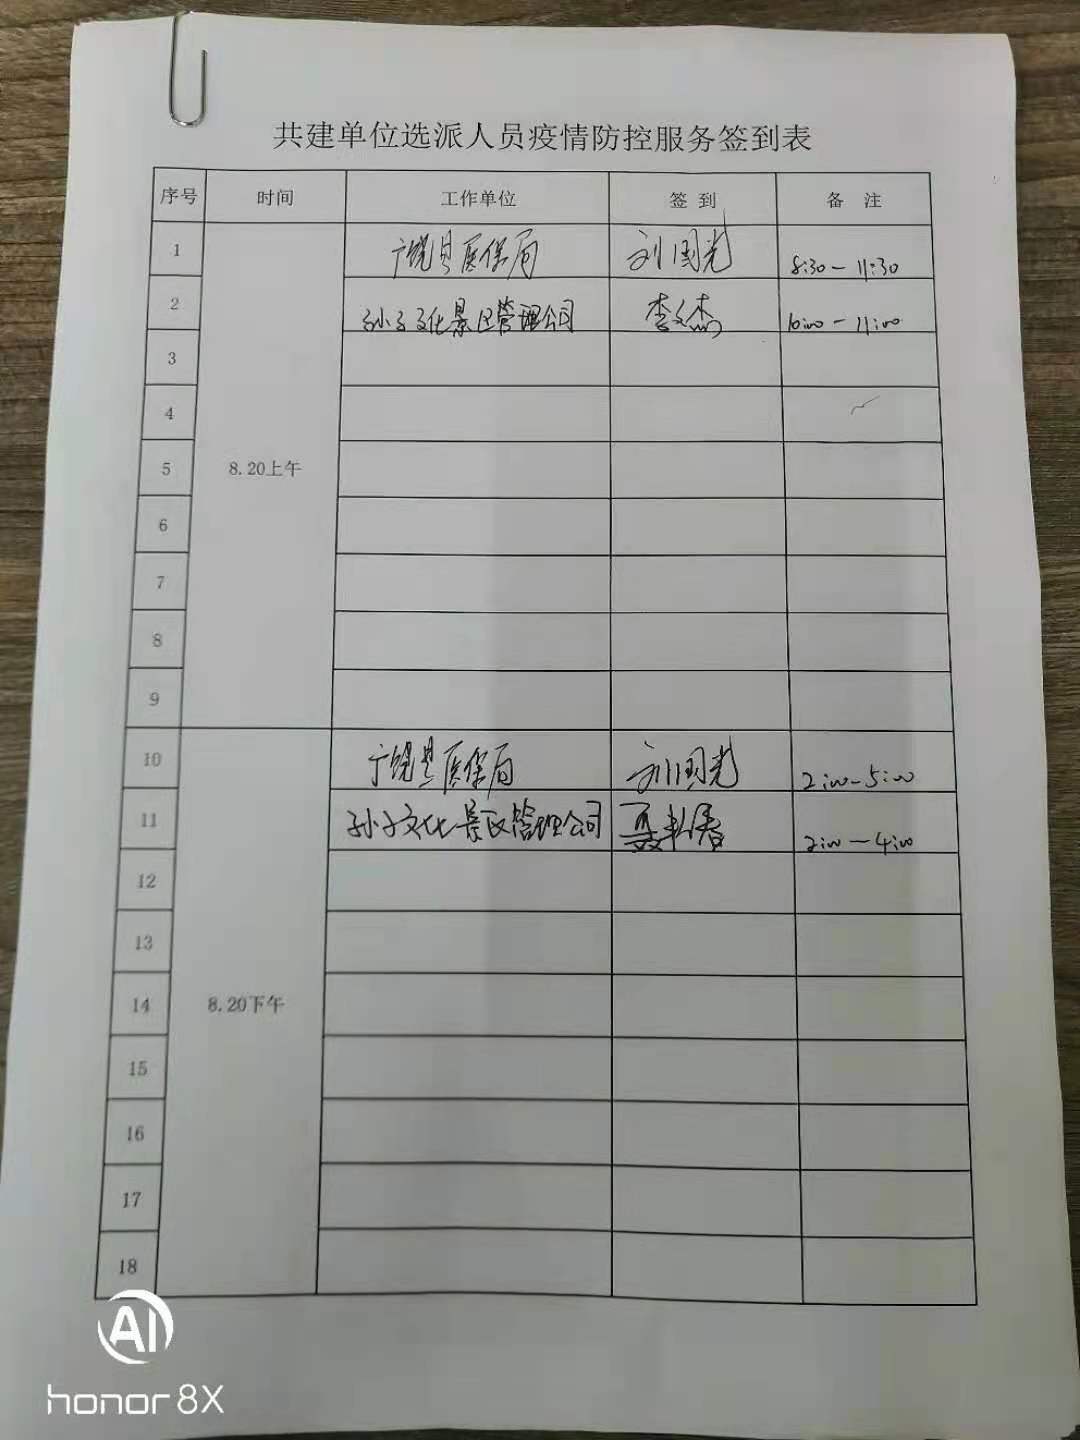 共建单位选派人员疫情防控服务签到表
序号 时间 工作单位 签到 备注
1 广饶县医保局 刘国光 8:30-11:30
2 孙子文化景区管理公司 李文杰 10:00-11:00
3
4
5 8.20上午
6
7
8
9
10 广饶县医保局 刘国光 2:00-5:00
11 孙子文化景区管理公司 2:00-4:00
12
13
14 8.20下午
15
16
17
18
AI
honor 8X